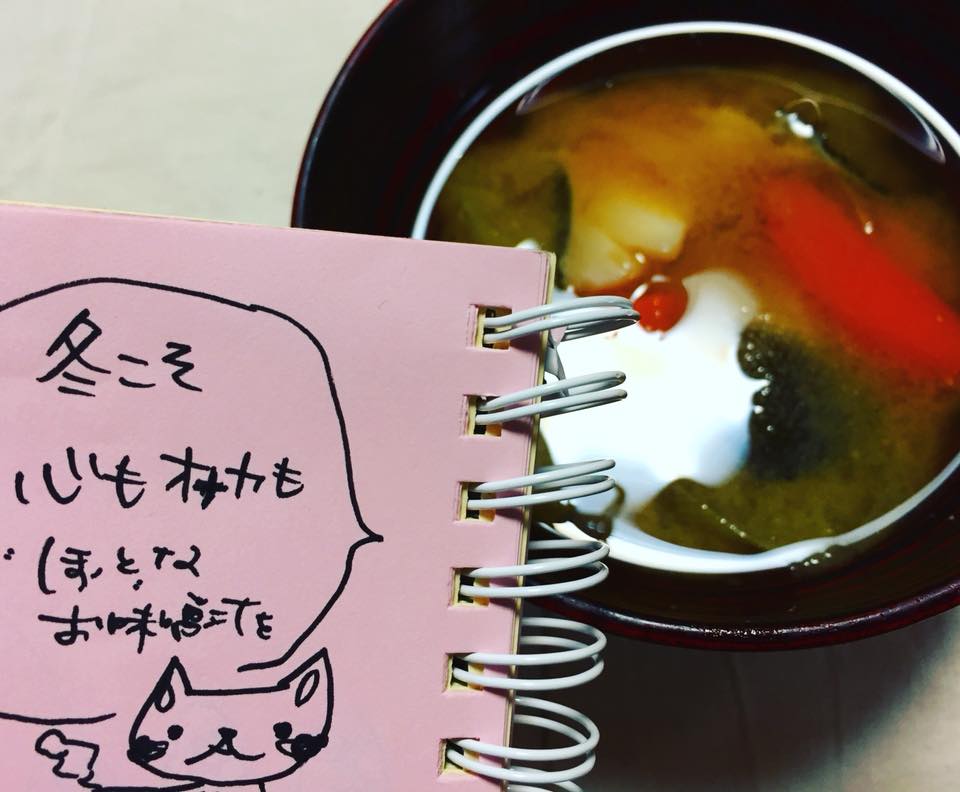 冬こそ
心もオナカも
ほっとな
お味噌汁を